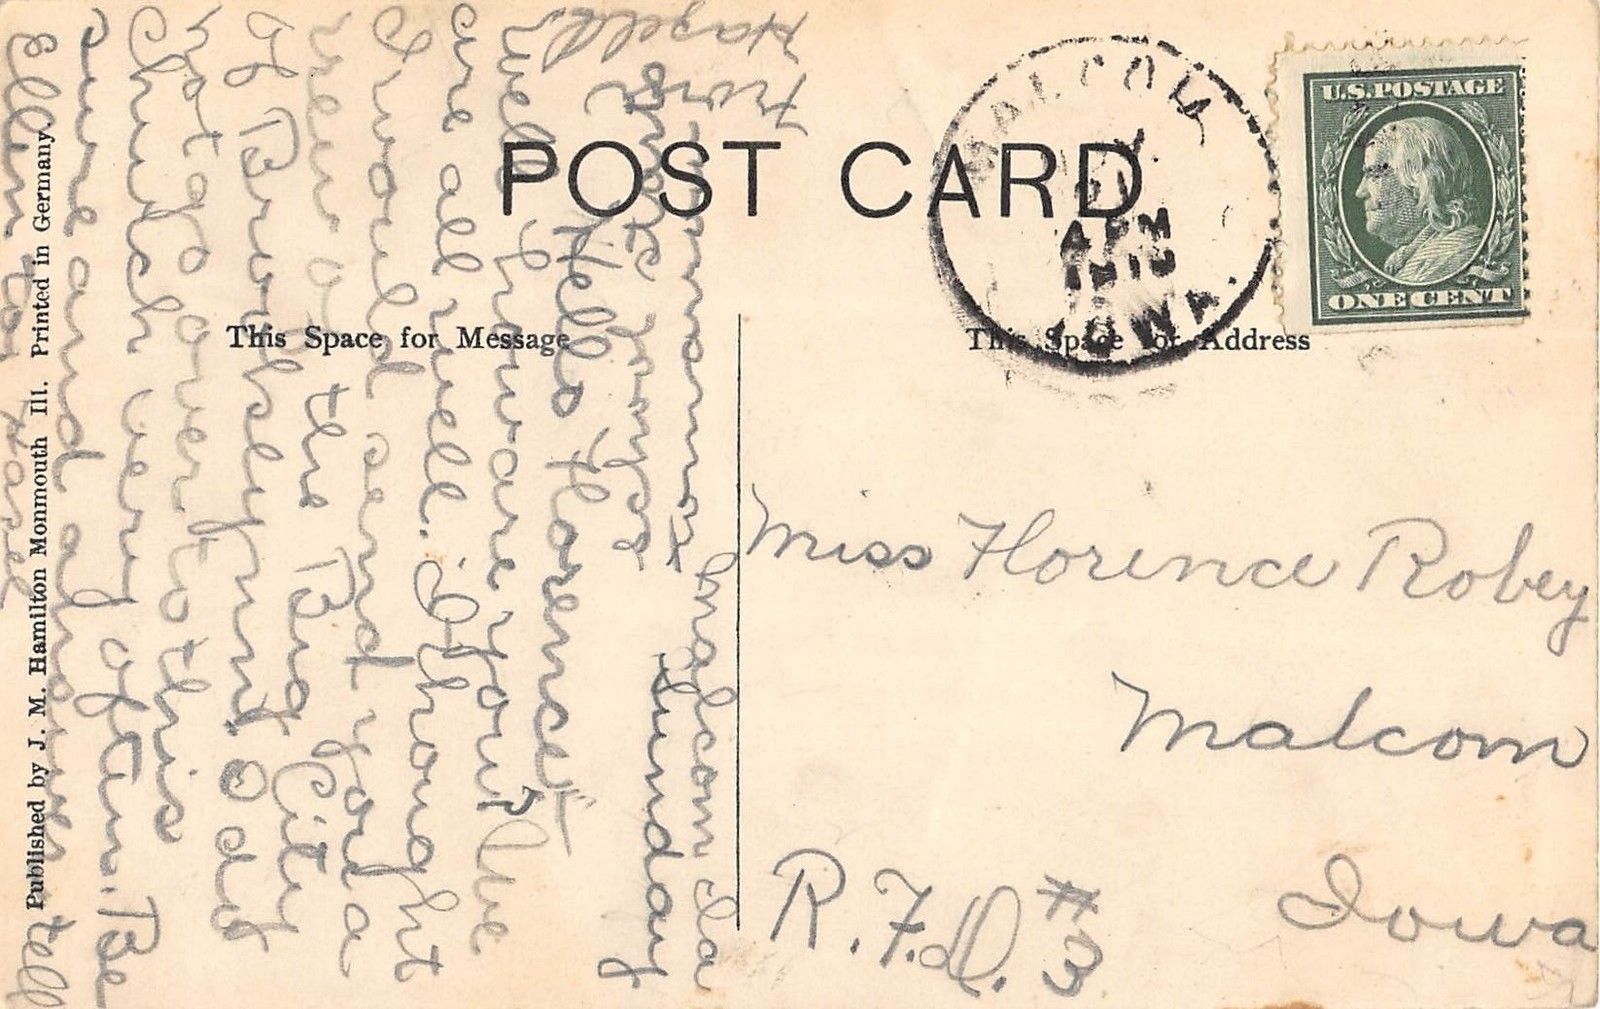 POST CARD
This Space for Message
This Space for Address
Published by J. M. Hamilton Monmouth Ill. Printed in Germany.
U.S. POSTAGE
ONE CENT
MALCOM
4 PM
IOWA.
Miss Florence Robey
Malcom
Iowa
R.F.D. #3
Malcom Ia
Sunday
Hello Florence:
well how are you? We
are all well. I thought
I would send you a
view of the Big City
of Brooklyn. I do
not go over to this
Church very often. Be
sure and answer
tell
Ellen to Hazel
from
Hazel